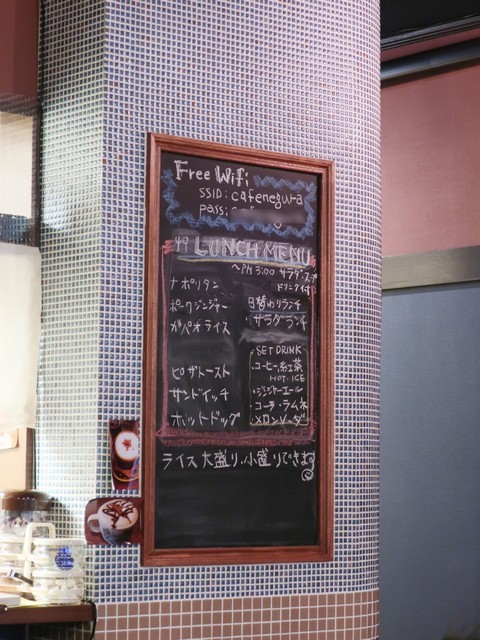 Free Wifi
SSID: cafenegura
pass:
LUNCH MENU
~PM 3:00 サラダ・スープ
ドリンク付
ナポリタン
ポークジンジャー
ガパオライス
日替わりランチ
サラダランチ
ピザトースト
サンドイッチ
ホットドッグ
SET DRINK
・コーヒー, 紅茶
HOT. ICE
・ジンジャーエール
・コーラ・ラムネ
・メロンソーダ
ライス大盛り.小盛りできます